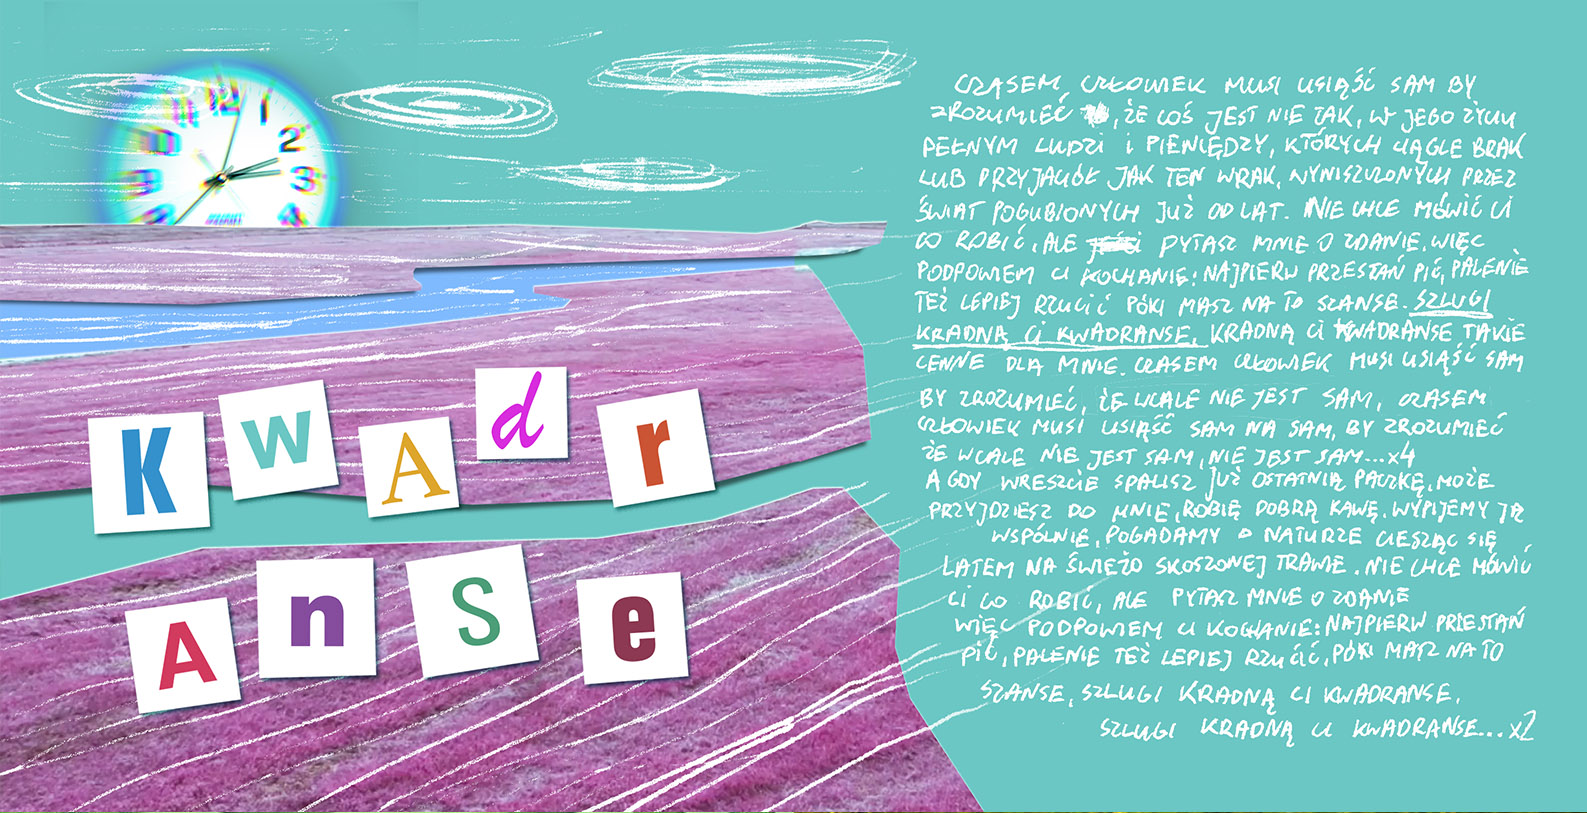 12
1
2
3
4
8
9
Kwadr
Anse
CZASEM, CZŁOWIEK MUSI USIĄŚĆ SAM BY
ZROZUMIEĆ, ŻE COŚ JEST NIE TAK, W JEGO ŻYCIU
PEŁNYM LUDZI i PIENIĘDZY, KTÓRYCH CIĄGLE BRAK
LUB PRZYJACIÓŁ JAK TEN WRAK, WYNISZCZONYCH PRZEZ
ŚWIAT POGUBIONYCH JUŻ OD LAT. NIE CHCE MÓWIĆ CI
CO ROBIĆ, ALE PYTASZ MNIE O ZDANIE, WIĘC
PODPOWIEM CI KOCHANIE: NAJPIERW PRZESTAŃ PIĆ, PALENIE
TEŻ LEPIEJ RZUCIĆ PÓKI MASZ NA TO SZANSE. SZLUGI
KRADNĄ CI KWADRANSE, KRADNĄ CI KWADRANSE TAKIE
CENNE DLA MNIE. CZASEM CZŁOWIEK MUSI USIĄŚĆ SAM
BY ZROZUMIEĆ, ŻE WCALE NIE JEST SAM, CZASEM
CZŁOWIEK MUSI USIĄŚĆ SAM NA SAM, BY ZROZUMIEĆ
ŻE WCALE NIE JEST SAM, NIE JEST SAM...x4
A GDY WRESZCIE SPALISZ JUŻ OSTATNIĄ PACZKĘ, MOŻE
PRZYJDZIESZ DO MNIE, ROBIĘ DOBRĄ KAWĘ, WYPIJEMY JĄ
WSPÓLNIE, POGADAMY O NATURZE CIESZĄC SIĘ
LATEM NA ŚWIEŻO SKOSZONEJ TRAWIE. NIE CHCE MÓWIĆ
CI CO ROBIĆ, ALE PYTASZ MNIE O ZDANIE
WIĘC PODPOWIEM CI KOCHANIE: NAJPIERW PRZESTAŃ
PIĆ, PALENIE TEŻ LEPIEJ RZUCIĆ, PÓKI MASZ NA TO
SZANSE, SZLUGI KRADNĄ CI KWADRANSE,
SZLUGI KRADNĄ CI KWADRANSE...x2